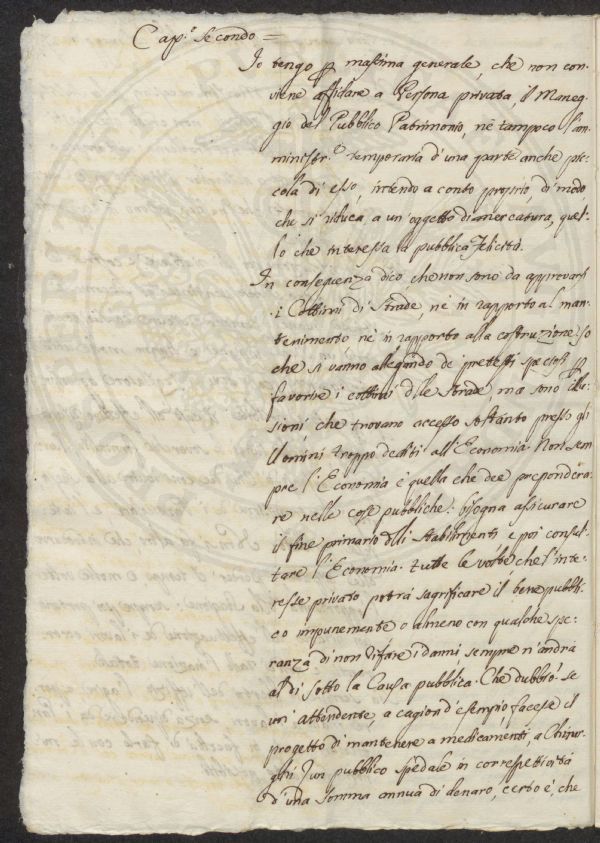 Cap.º Secondo =
Io tengo p massima generale, che non con-
viene affidare a Persona privata, il Maneg-
gio del Pubblico Patrimonio, nè tampoco l'am-
ministr.e temporaria d'una parte anche pic-
cola di esso, intendo a conto proprio, di modo
che si riduca a un'oggetto di mercatura, quel-
lo che interessa la pubblica felicità.
In conseguenza dico che non sono da approvarsi
i Cottimi di Strade, nè in rapporto al man-
tenimento nè in rapporto alla costruzione. So
che si vanno allegando de' pretesti speciosi p
favorire i cottimi d.lle Strade, ma sono illu-
sioni che trovano accesso soltanto presso gli
Uomini troppo dediti all'Economia. Non sem-
pre l'Economia è quella che dee prepondera-
re nelle cose pubbliche: bisogna assicurare
il fine primario d.lli Stabilimenti e poi consul-
tare l'Economia. Tutte le volte che l'inte-
resse privato potrà sagrificare il bene pubbli-
co impunemente o almeno con qualche spe-
ranza di non rifare i danni sempre n'andrà
al di sotto la Causa pubblica. Che dubbio se
un' attendente, a cagion d'esempio facesse il
progetto di mantenere a medicamenti, a Chirur-
ghi un pubblico spedale in correspettività
d'una somma annua di denaro, certo è, che